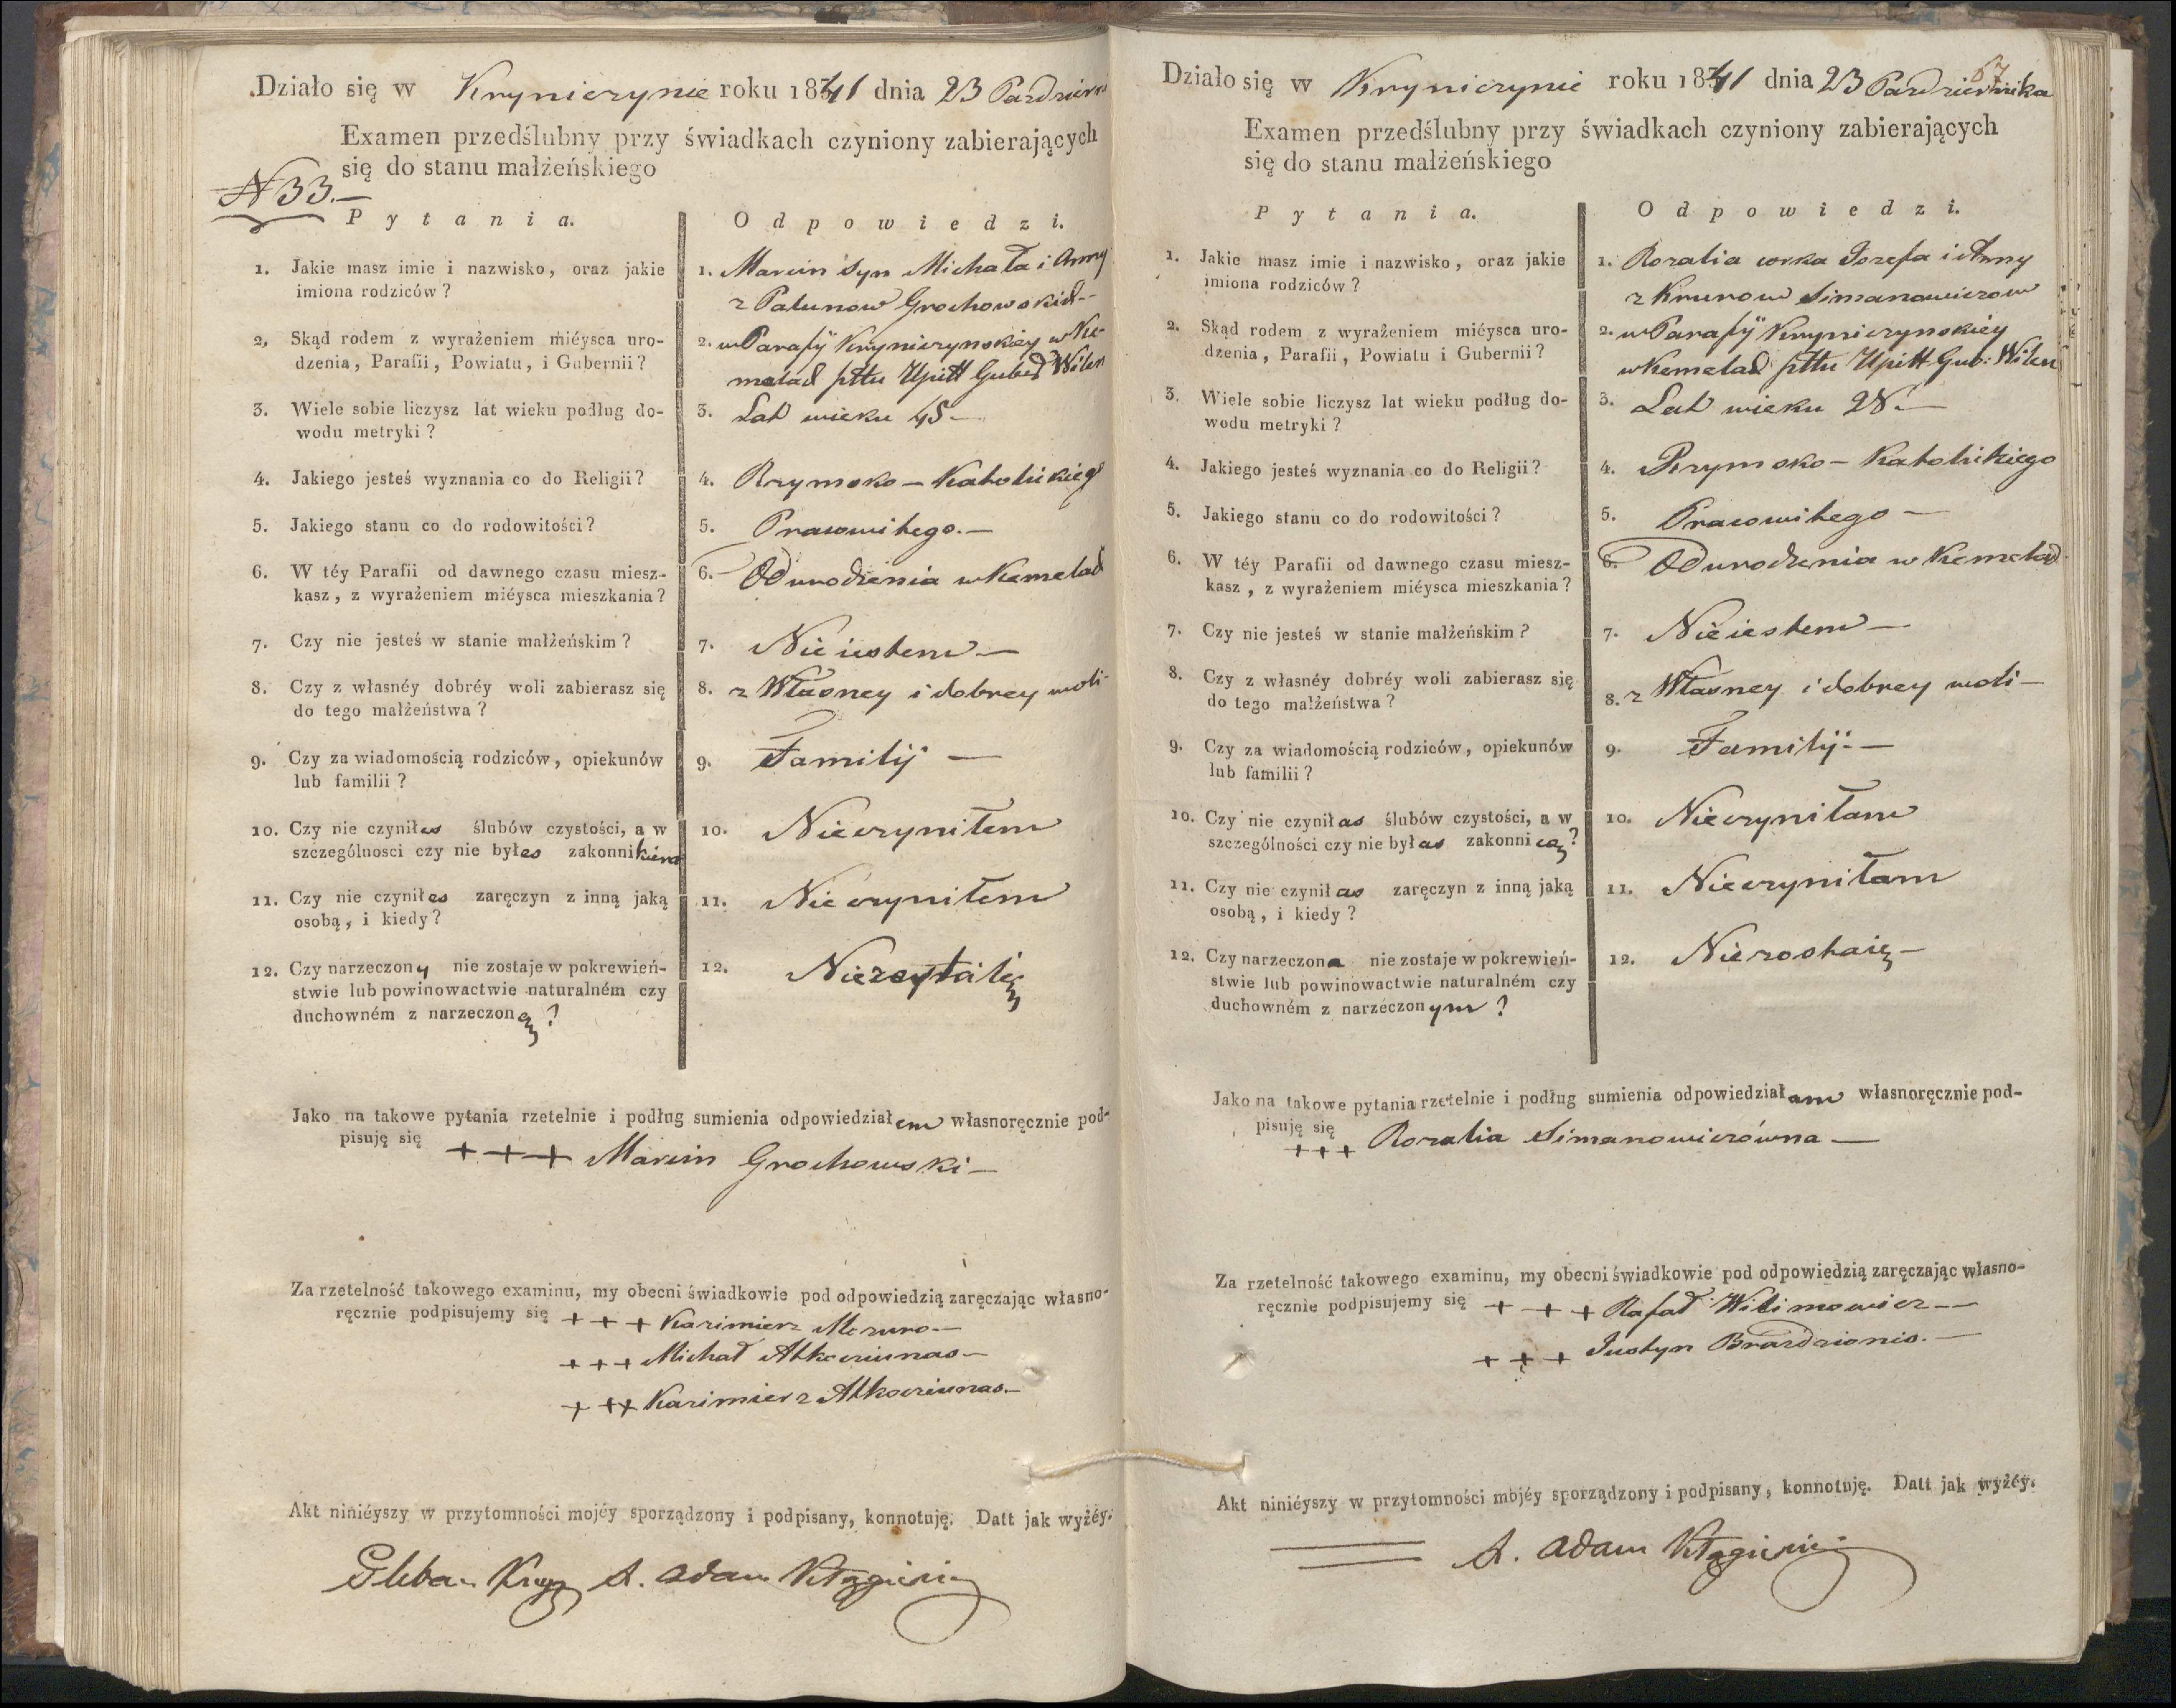 Działo się w Kryniczynie roku 1841 dnia 23 Pazdziern
Examen przedślubny przy świadkach czyniony zabierających
się do stanu małżeńskiego
N 33.
Pytania.
Odpowiedzi.
1. Jakie masz imie i nazwisko, oraz jakie
imiona rodziców?
1. Marcin Syn Michała i Anny
z Palunow Grochowskich
2, Skąd rodem z wyrażeniem miéysca uro-
dzenia, Parafii, Powiatu, i Gubernii?
2. w Parafij Kryniczynskiey w Kie-
melach pttu Upitt Guber Wilen
3. Wiele sobie liczysz lat wieku podług do-
wodu metryki?
3. Lat wieku 45
4. Jakiego jesteś wyznania co do Religii?
4. Rzymsko-Katolickieg
5. Jakiego stanu co do rodowitości?
5. Pracowitego.
6. W téy Parafii od dawnego czasu miesz-
kasz, z wyrażeniem miéysca mieszkania?
6. Od urodzenia w Kiemelach
7. Czy nie jesteś w stanie małżeńskim?
7. Nie iestem
8. Czy z własnéy dobréy woli zabierasz się
do tego małżeństwa?
8. z Własney i dobrey woli
9. Czy za wiadomością rodziców, opiekunów
lub familii?
9. Familij
10. Czy nie czyniłes ślubów czystości, a w
szczególnosci czy nie byłes zakonnikiem
10. Nieczyniłem
11. Czy nie czyniłes zaręczyn z inną jaką
osobą, i kiedy?
11. Nieczyniłem
12. Czy narzeczony nie zostaje w pokrewień-
stwie lub powinowactwie naturalném czy
duchowném z narzeczoną?
12.
Jako na takowe pytania rzetelnie i podług sumienia odpowiedziałem własnoręcznie pod-
pisuję się +++ Marcin Grochowski
Za rzetelność takowego examinu, my obecni świadkowie pod odpowiedzią zaręczając własno-
ręcznie podpisujemy się +++ Kazimierz
+++ Michał Atkocziunas
+++ Kazimierz Atkocziunas.
Akt niniéyszy w przytomności mojéy sporządzony i podpisany, konnotuję. Datt jak wyżéy.
Pleban X. Adam
67
Działo się w Kryniczynie roku 1841 dnia 23 Pazdziernika
Examen przedślubny przy świadkach czyniony zabierających
się do stanu małżeńskiego
Pytania.
Odpowiedzi.
1. Jakie masz imie i nazwisko, oraz jakie
imiona rodziców?
1. Rozalia corka Jozefa i Anny
z Simanowiczow
2. Skąd rodem z wyrażeniem miéysca uro-
dzenia, Parafii, Powiatu i Gubernii?
2. w Parafij Kryniczynskiey
w Kiemelach pttu Upitt Gub: Wilen
3. Wiele sobie liczysz lat wieku podług do-
wodu metryki?
3. Lat wieku 28.
4. Jakiego jesteś wyznania co do Religii?
4. Rzymsko-Katolickiego
5. Jakiego stanu co do rodowitości?
5. Pracowitego
6. W téy Parafii od dawnego czasu miesz-
kasz, z wyrażeniem miéysca mieszkania?
6. Od urodzenia w Kiemelach
7. Czy nie jesteś w stanie małżeńskim?
7. Nie iestem
8. Czy z własnéy dobréy woli zabierasz się
do tego małżeństwa?
8. z Własney i dobrey woli
9. Czy za wiadomością rodziców, opiekunów
lub familii?
9. Familij
10. Czy nie czyniłas ślubów czystości, a w
szczególności czy nie byłas zakonnicą?
10. Nieczyniłam
11. Czy nie czyniłas zaręczyn z inną jaką
osobą, i kiedy?
11. Nieczyniłam
12. Czy narzeczona nie zostaje w pokrewień-
stwie lub powinowactwie naturalném czy
duchowném z narzeczonym?
12. Niezostaię
Jako na takowe pytania rzetelnie i podług sumienia odpowiedziałam własnoręcznie pod-
pisuję się
+++ Rozalia Simanowiczówna
Za rzetelność takowego examinu, my obecni świadkowie pod odpowiedzią zaręczając własno-
ręcznie podpisujemy się +++ Rafał Wilimowicz
+++ Justyn Brazdzionis.
Akt niniéyszy w przytomności mojéy sporządzony i podpisany, konnotuję. Datt jak wyżéy.
X. Adam